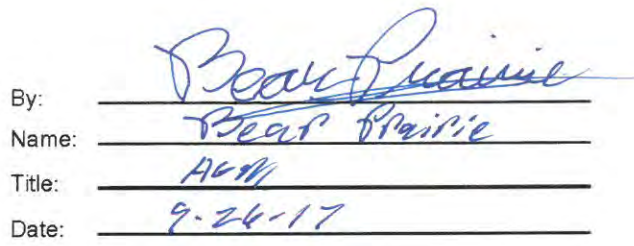 By: Bear Prairie
Name: Bear Prairie
Title: AGM
Date: 9-26-17